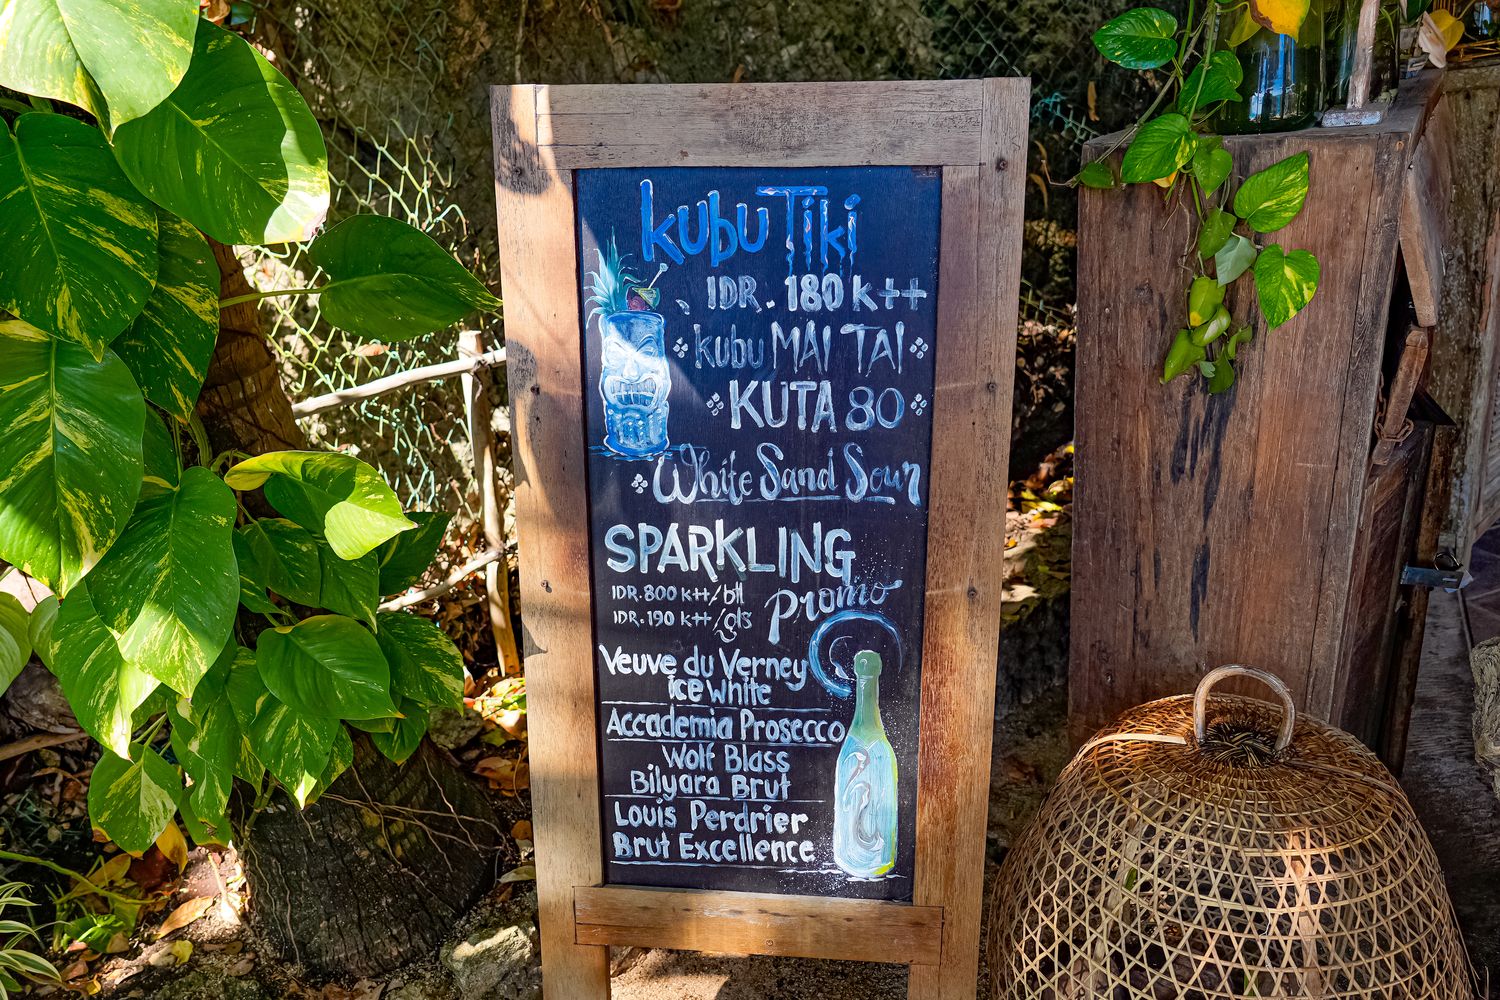 kubu Tiki
IDR. 180 k++
kubu MAI TAI
KUTA 80
White Sand Sour
SPARKLING
promo
IDR. 800 k++/btl
IDR. 190 k++/gls
Veuve du Verney
ice white
Accademia Prosecco
Wolf Blass
Bilyara Brut
Louis Perdrier
Brut Excellence